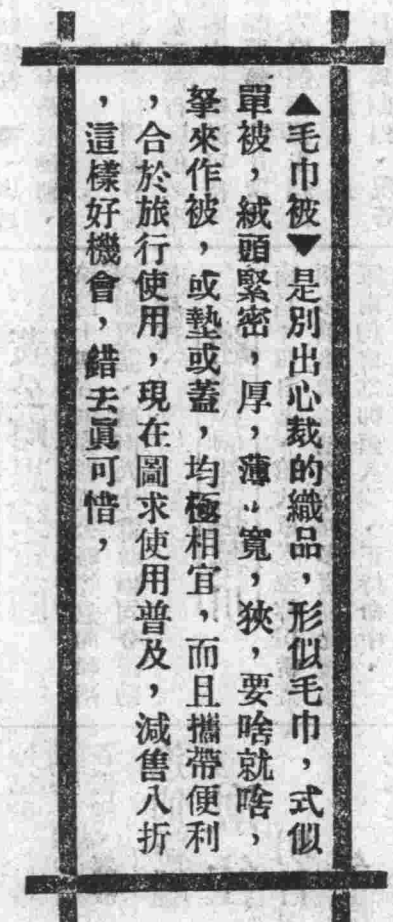 ▲毛巾被▼是別出心裁的織品，形似毛巾，式似
單被，絨頭緊密，厚，薄，寬，狹，要啥就啥，
拏來作被，或墊或蓋，均極相宜，而且攜帶便利
，合於旅行使用，現在圖求使用普及，減售八折
，這樣好機會，錯去眞可惜，